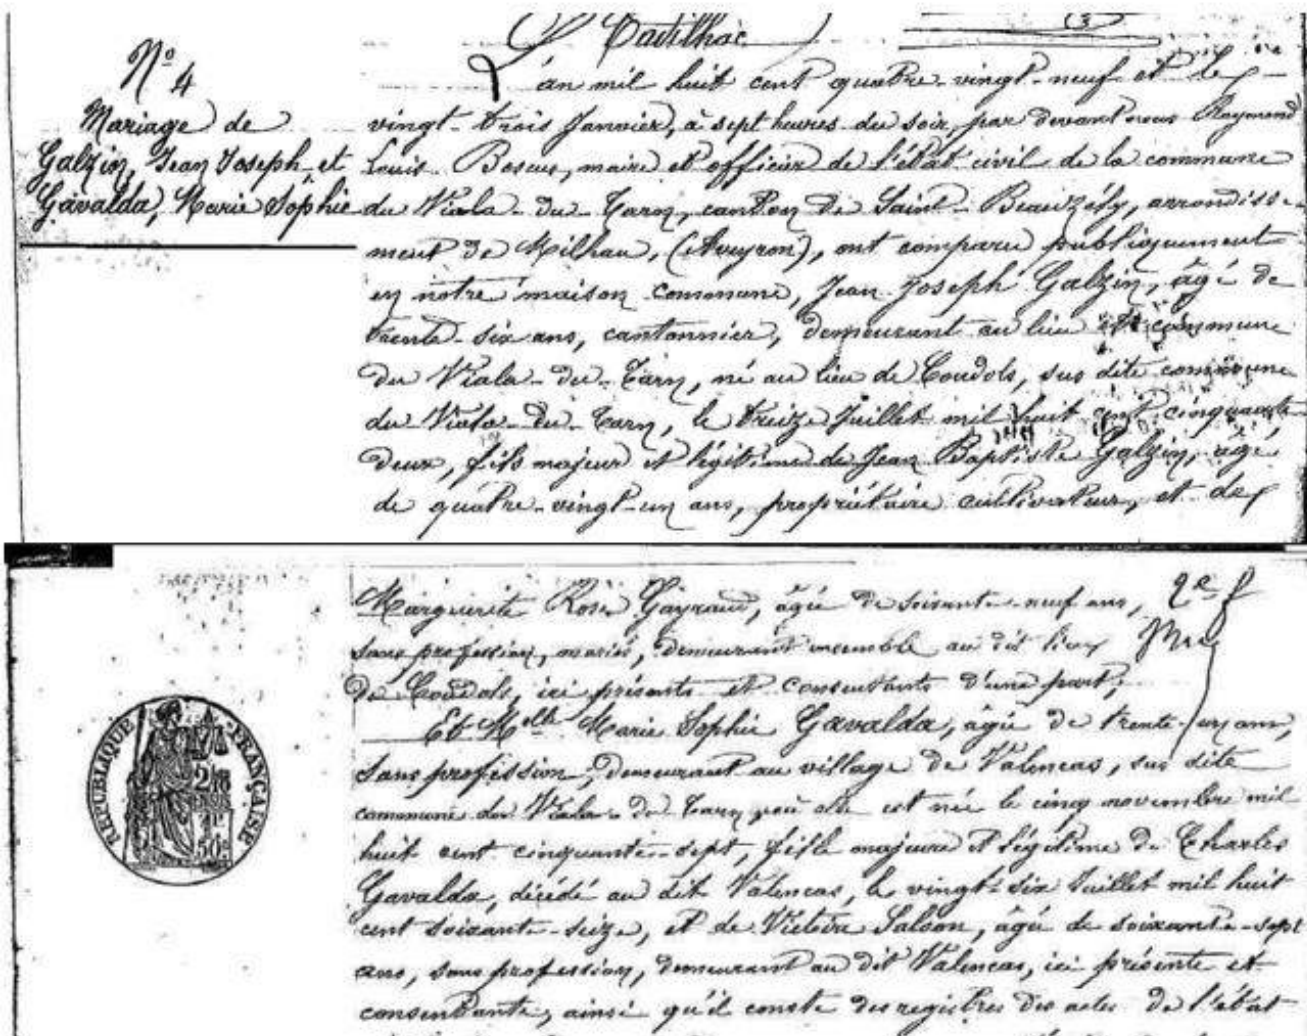 Cadilhac
Nº 4
Mariage de
Galzin, Jean Joseph et
Gavalda, Marie Sophie
L'an mil huit cent quatre-vingt-neuf et le
vingt-trois Janvier, à sept heures du soir, par devant nous Raymond
Louis Boscus, maire et officier de l'état civil de la commune
du Viala-du-Tarn, canton de Saint-Beauzély, arrondisse-
ment de Milhau, (Aveyron), ont comparu publiquement
en notre maison commune, Jean Joseph Galzin, âgé de
trente-six ans, cantonnier, demeurant au lieu et commune
du Viala-du-Tarn, né au lieu de Coudols, sus dite commune
du Viala-du-Tarn, le treize Juillet mil huit cent cinquante
deux, fils majeur et légitime de Jean Baptiste Galzin, âgé
de quatre-vingt-un ans, propriétaire cultivateur, et de
Marguerite Rose Gayraud, âgée de soixante-neuf ans,
sans profession, mariés, demeurant ensemble au dit lieu
de Coudols, ici présents et consentants d'une part;
Et Melle Marie Sophie Gavalda, âgée de trente-un ans,
sans profession, demeurant au village de Valencas, sus dite
commune du Viala-du-Tarn où elle est née le cinq novembre mil
huit cent cinquante-sept, fille majeure et légitime de Charles
Gavalda, décédé au dit Valencas, le vingt-six Juillet mil huit
cent soixante-seize, et de Victoire Salson, âgée de soixante-sept
ans, sans profession, demeurant au dit Valencas, ici présente et
consentante, ainsi qu'il conste des registres des actes de l'état
2e f
RÉPUBLIQUE FRANÇAISE
50c